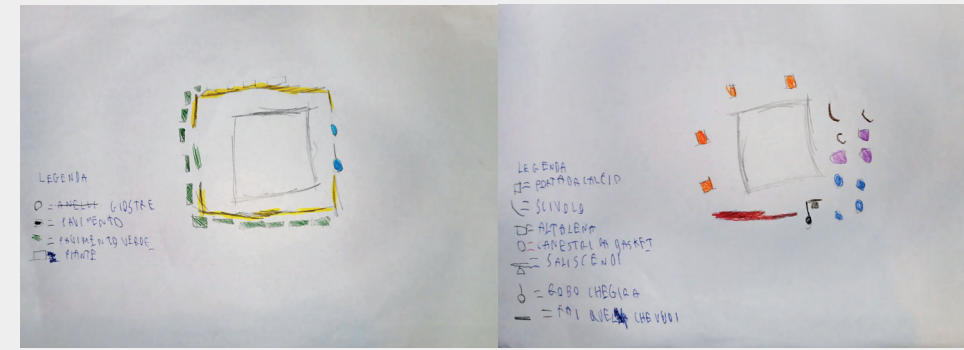 LEGENDA
= ANELLI GIOSTRE
= PAVIMENTO
= PAVIMENTO VERDE
= PIANTE
LEGENDA
= PORTA DA CALCIO
= SCIVOLO
= ALTALENA
= CANESTRI DA BASKET
= SALISCENDI
= COSO CHE GIRA
= FAI QUELLO CHE VUOI